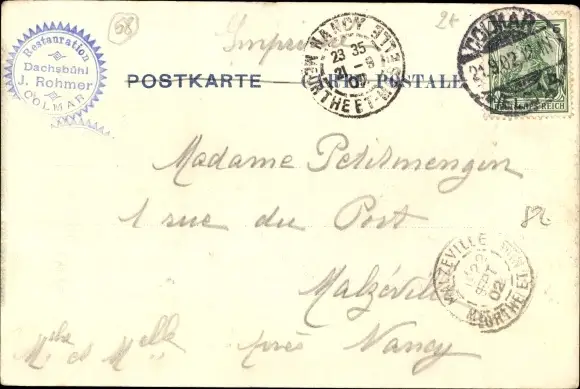 Restauration
Dachsbühl
J. Rohmer
COLMAR
58
2x
NANCY
23 35
21 - 9
02
MEURTHE ET MOSELLE
COLMAR
21.9.02
POSTKARTE CARTE POSTALE
DEUTSCHES REICH
5
Madame Petitmengin
1 rue du Port
82
Malzéville
MALZEVILLE
22
SEPT
02
MEURTHE ET
près Nancy